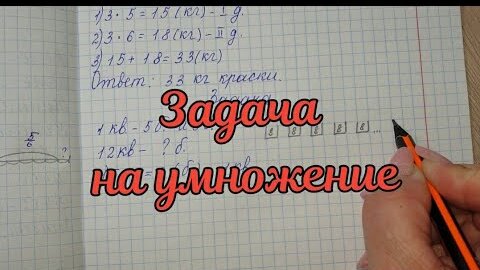 1) 3 · 5 = 15 (кг) – I д.
2) 3 · 6 = 18 (кг) – II д.
3) 15 + 18 = 33 (кг)
Ответ: 33 кг краски.
Задача
1 кв – 5б.
8 8 8 8 8 ...
12кв – ? б.
5
6
?
Задача
на умножение